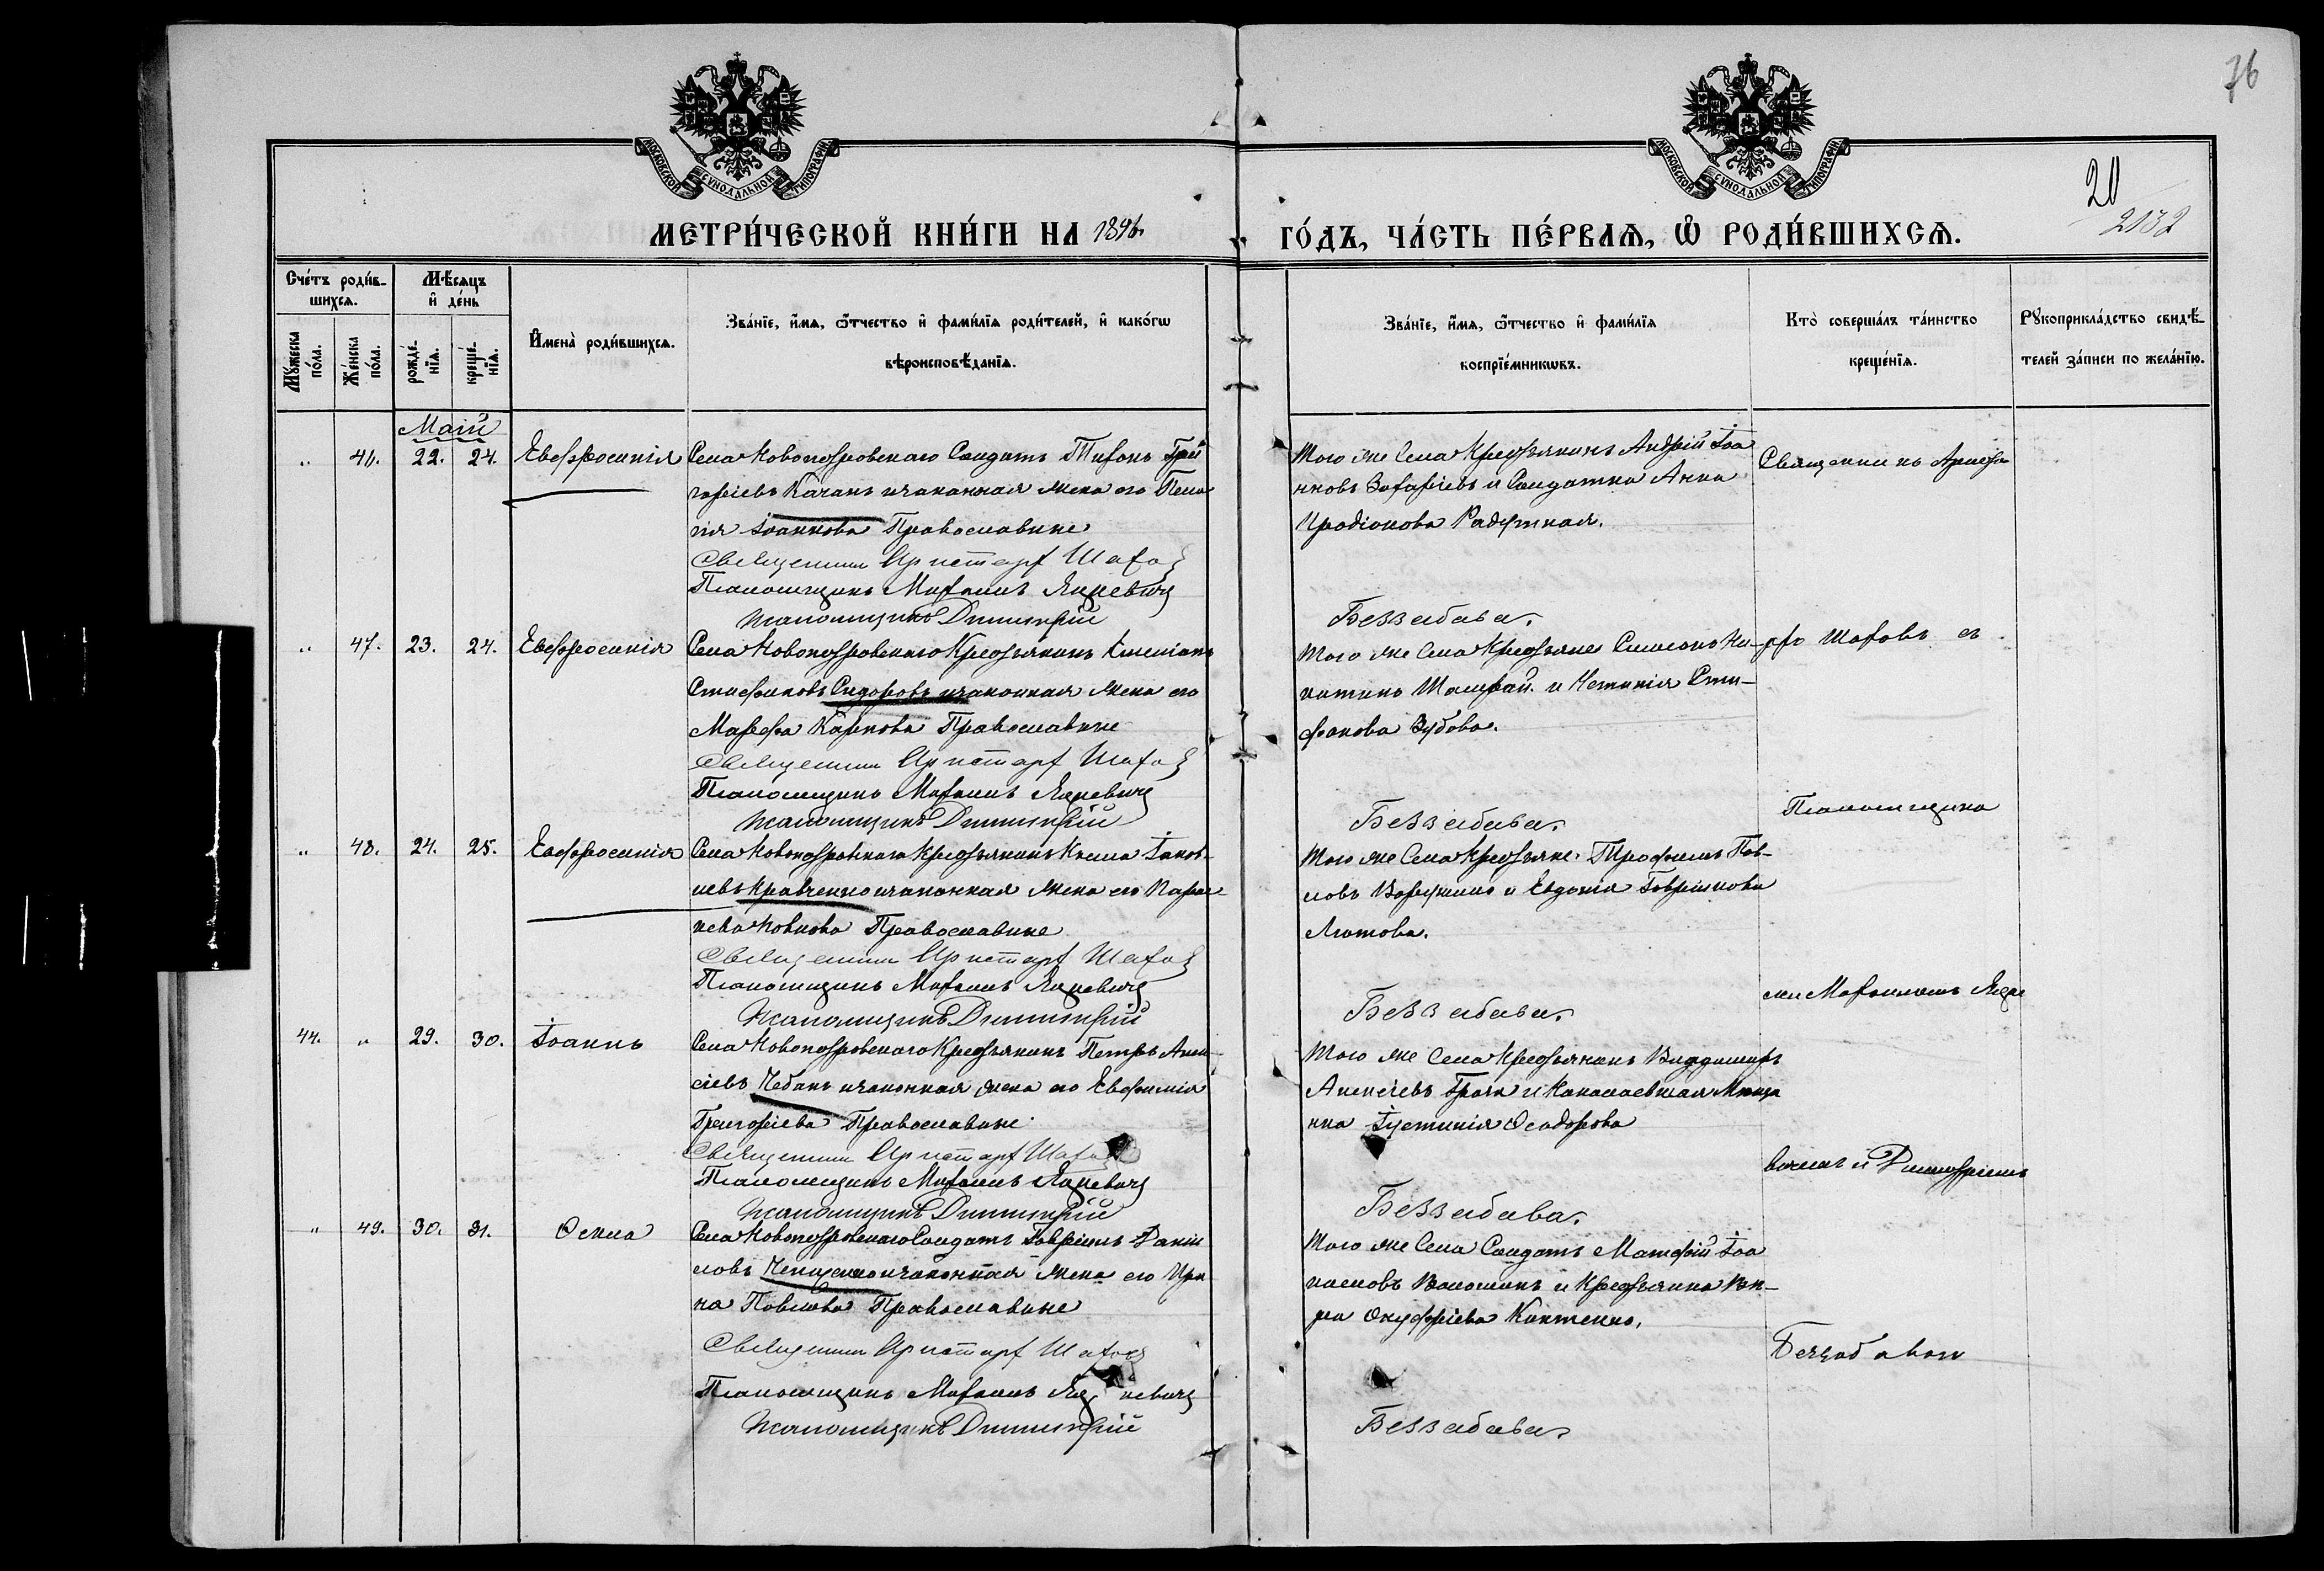 76
МОСКОВСКОЙ СУНОДАЛЬНОЙ ТИПОГРАФІИ
МОСКОВСКОЙ СУНОДАЛЬНОЙ ТИПОГРАФІИ
20
2132
МЕТРИ́ЧЕСКОЙ КНИ́ГИ НА 1896
ГО́ДЪ, ЧА́СТЬ ПЕ́РВАѦ, Ѡ РОДИ́ВШИХСѦ.
Сче́тъ роди́в-
шихсѧ.
Мѣ́сѧцъ
и҆ де́нь
Мꙋ́жеска
по́ла.
Же́нска
по́ла.
рожде́-
нїѧ.
креще́-
нїѧ.
И҆мена̀ роди́вшихсѧ.
Зва́нїе, и҆́мѧ, ѻ҆́тчество и҆ фами́лїѧ роди́телей, и҆ како́гѡ
вѣроисповѣ́данїѧ.
Зва́нїе, и҆́мѧ, ѻ҆́тчество и҆ фами́лїѧ
воспрїе́мникѡвъ.
Кто̀ соверша́лъ та́инство
креще́нїѧ.
Рꙋкоприкла́дство свидѣ́-
телей за́писи по жела́нїю.
Маій
" 46. 22. 24. Евфросинія Села Новопокровскаго Солдатъ Тихонъ Гри
горіевъ Качанъ и законная жена его Пела
гія Іоаннова Православные
Священникъ Аристархъ Шаховъ
Псаломщикъ Михаилъ Яцкевичъ
Псаломщикъ Димитрій
Того же Села Крестьянинъ Андрій Іоа
нновъ Захаріевъ и Солдатка Анна
Иродіонова Радутная.
Беззабава.
Священникъ Ариста
" 47. 23. 24. Евфросинія Села Новопокровскаго Крестьянинъ
Стефановъ Сидоровъ и законная жена его
Марфа Карпова Православные
Священникъ Аристархъ Шаховъ
Псаломщикъ Михаилъ Яцкевичъ
Псаломщикъ Димитрій
Того же Села Крестьяне Симеонъ Ни-
китинъ и Устинія Сте-
фанова Зубова.
Беззабава.
рхъ Шаховъ съ
Псаломщика
" 48. 24. 25. Евфросинія Села Новопокровскаго Крестьянинъ Козма Іаков-
левъ Кравченко и законная жена его Парас-
кева Православные
Священникъ Аристархъ Шаховъ
Псаломщикъ Михаилъ Яцкевичъ
Псаломщикъ Димитрій
Того же Села Крестьяне: Трофимъ Пав-
ловъ и Евдокія Гавріилова
Лютова.
Беззабава.
ми Михаиломъ Яцке
44. " 29. 30. Іоаннъ Села Новопокровскаго Крестьянинъ Петръ Алек
сіевъ Чебанъ и законная жена его Евфимія
Григоріева Православные
Священникъ Аристархъ Шаховъ
Псаломщикъ Михаилъ Яцкевичъ
Псаломщикъ Димитрій
Того же Села Крестьянинъ Владимиръ
Алексіевъ и Николаевская Мѣща
нка Іустинія Ѳеодорова
Беззабава.
вичемъ и Димитріемъ
" 49. 30. 31. Ѳекла Села Новопокровскаго Солдатъ Гавріилъ Дани
ловъ и законная жена его Ири
на Павлова Православные
Священникъ Аристархъ Шаховъ
Псаломщикъ Михаилъ Яцкевичъ
Псаломщикъ Димитрій
Того же Села Солдатъ Матфій Іоа
Волошинъ и Крестьянка
Онуфріева
Беззабава.
Беззабавою